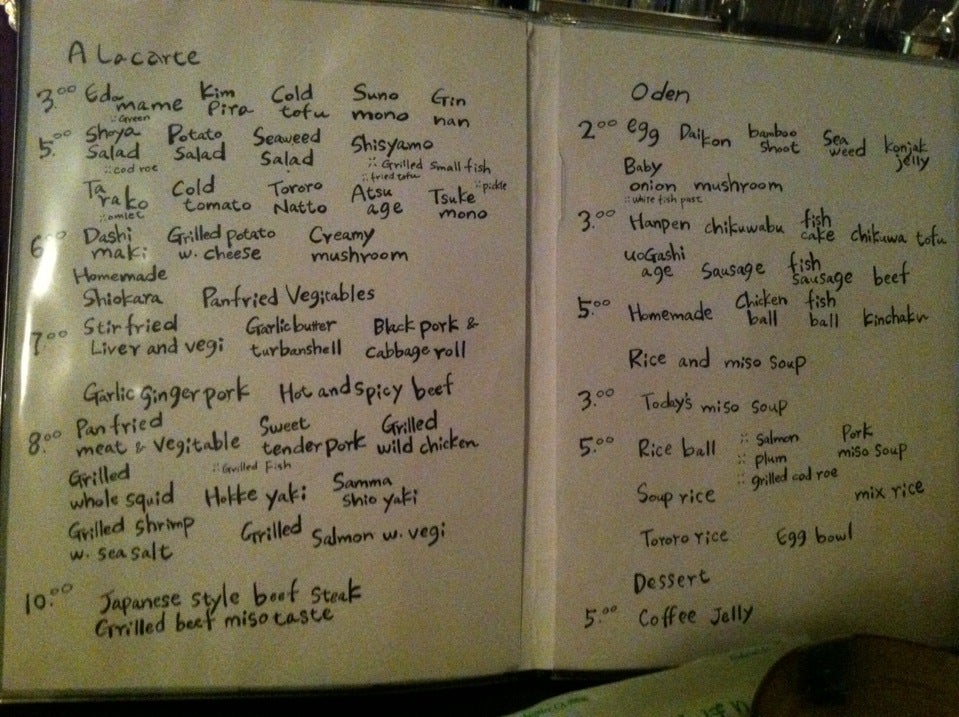 A Lacarte
3.00 Eda mame Kim Pira Cold tofu Suno mono Gin nan
∴ Green
5.00 Shoya Salad Potato Salad Seaweed Salad Shisyamo
∴ Grilled small fish
∴ cod roe
∴ fried tofu
∴ pickle
Ta rako Cold tomato Tororo Natto Atsu age Tsuke mono
∴ omlet
6.00 Dashi maki Grilled potato w. cheese Creamy mushroom
Homemade
Shiokara Panfried Vegitables
7.00 Stir fried Liver and vegi Garlic butter turbanshell Black pork & cabbage roll
Garlic Ginger pork Hot and spicy beef
8.00 Pan fried meat & vegitable Sweet tender pork Grilled wild chicken
∴ Grilled Fish
Grilled whole squid Hokke yaki Samma shio yaki
Grilled shrimp w. sea salt Grilled Salmon w. vegi
10.00 Japanese style beef steak
Grilled beef miso taste
Oden
2.00 egg Daikon bamboo shoot Sea weed konjak jelly
Baby
onion mushroom
∴ white fish past
3.00 Hanpen chikuwabu fish cake chikuwa tofu
uoGashi age Sausage fish sausage beef
5.00 Homemade Chicken ball fish ball kinchaku
Rice and miso soup
3.00 Today's miso soup
5.00 Rice ball ∴ Salmon Pork miso soup
∴ plum
∴ grilled cod roe
Soup rice mix rice
Tororo rice Egg bowl
Dessert
5.00 Coffee Jelly